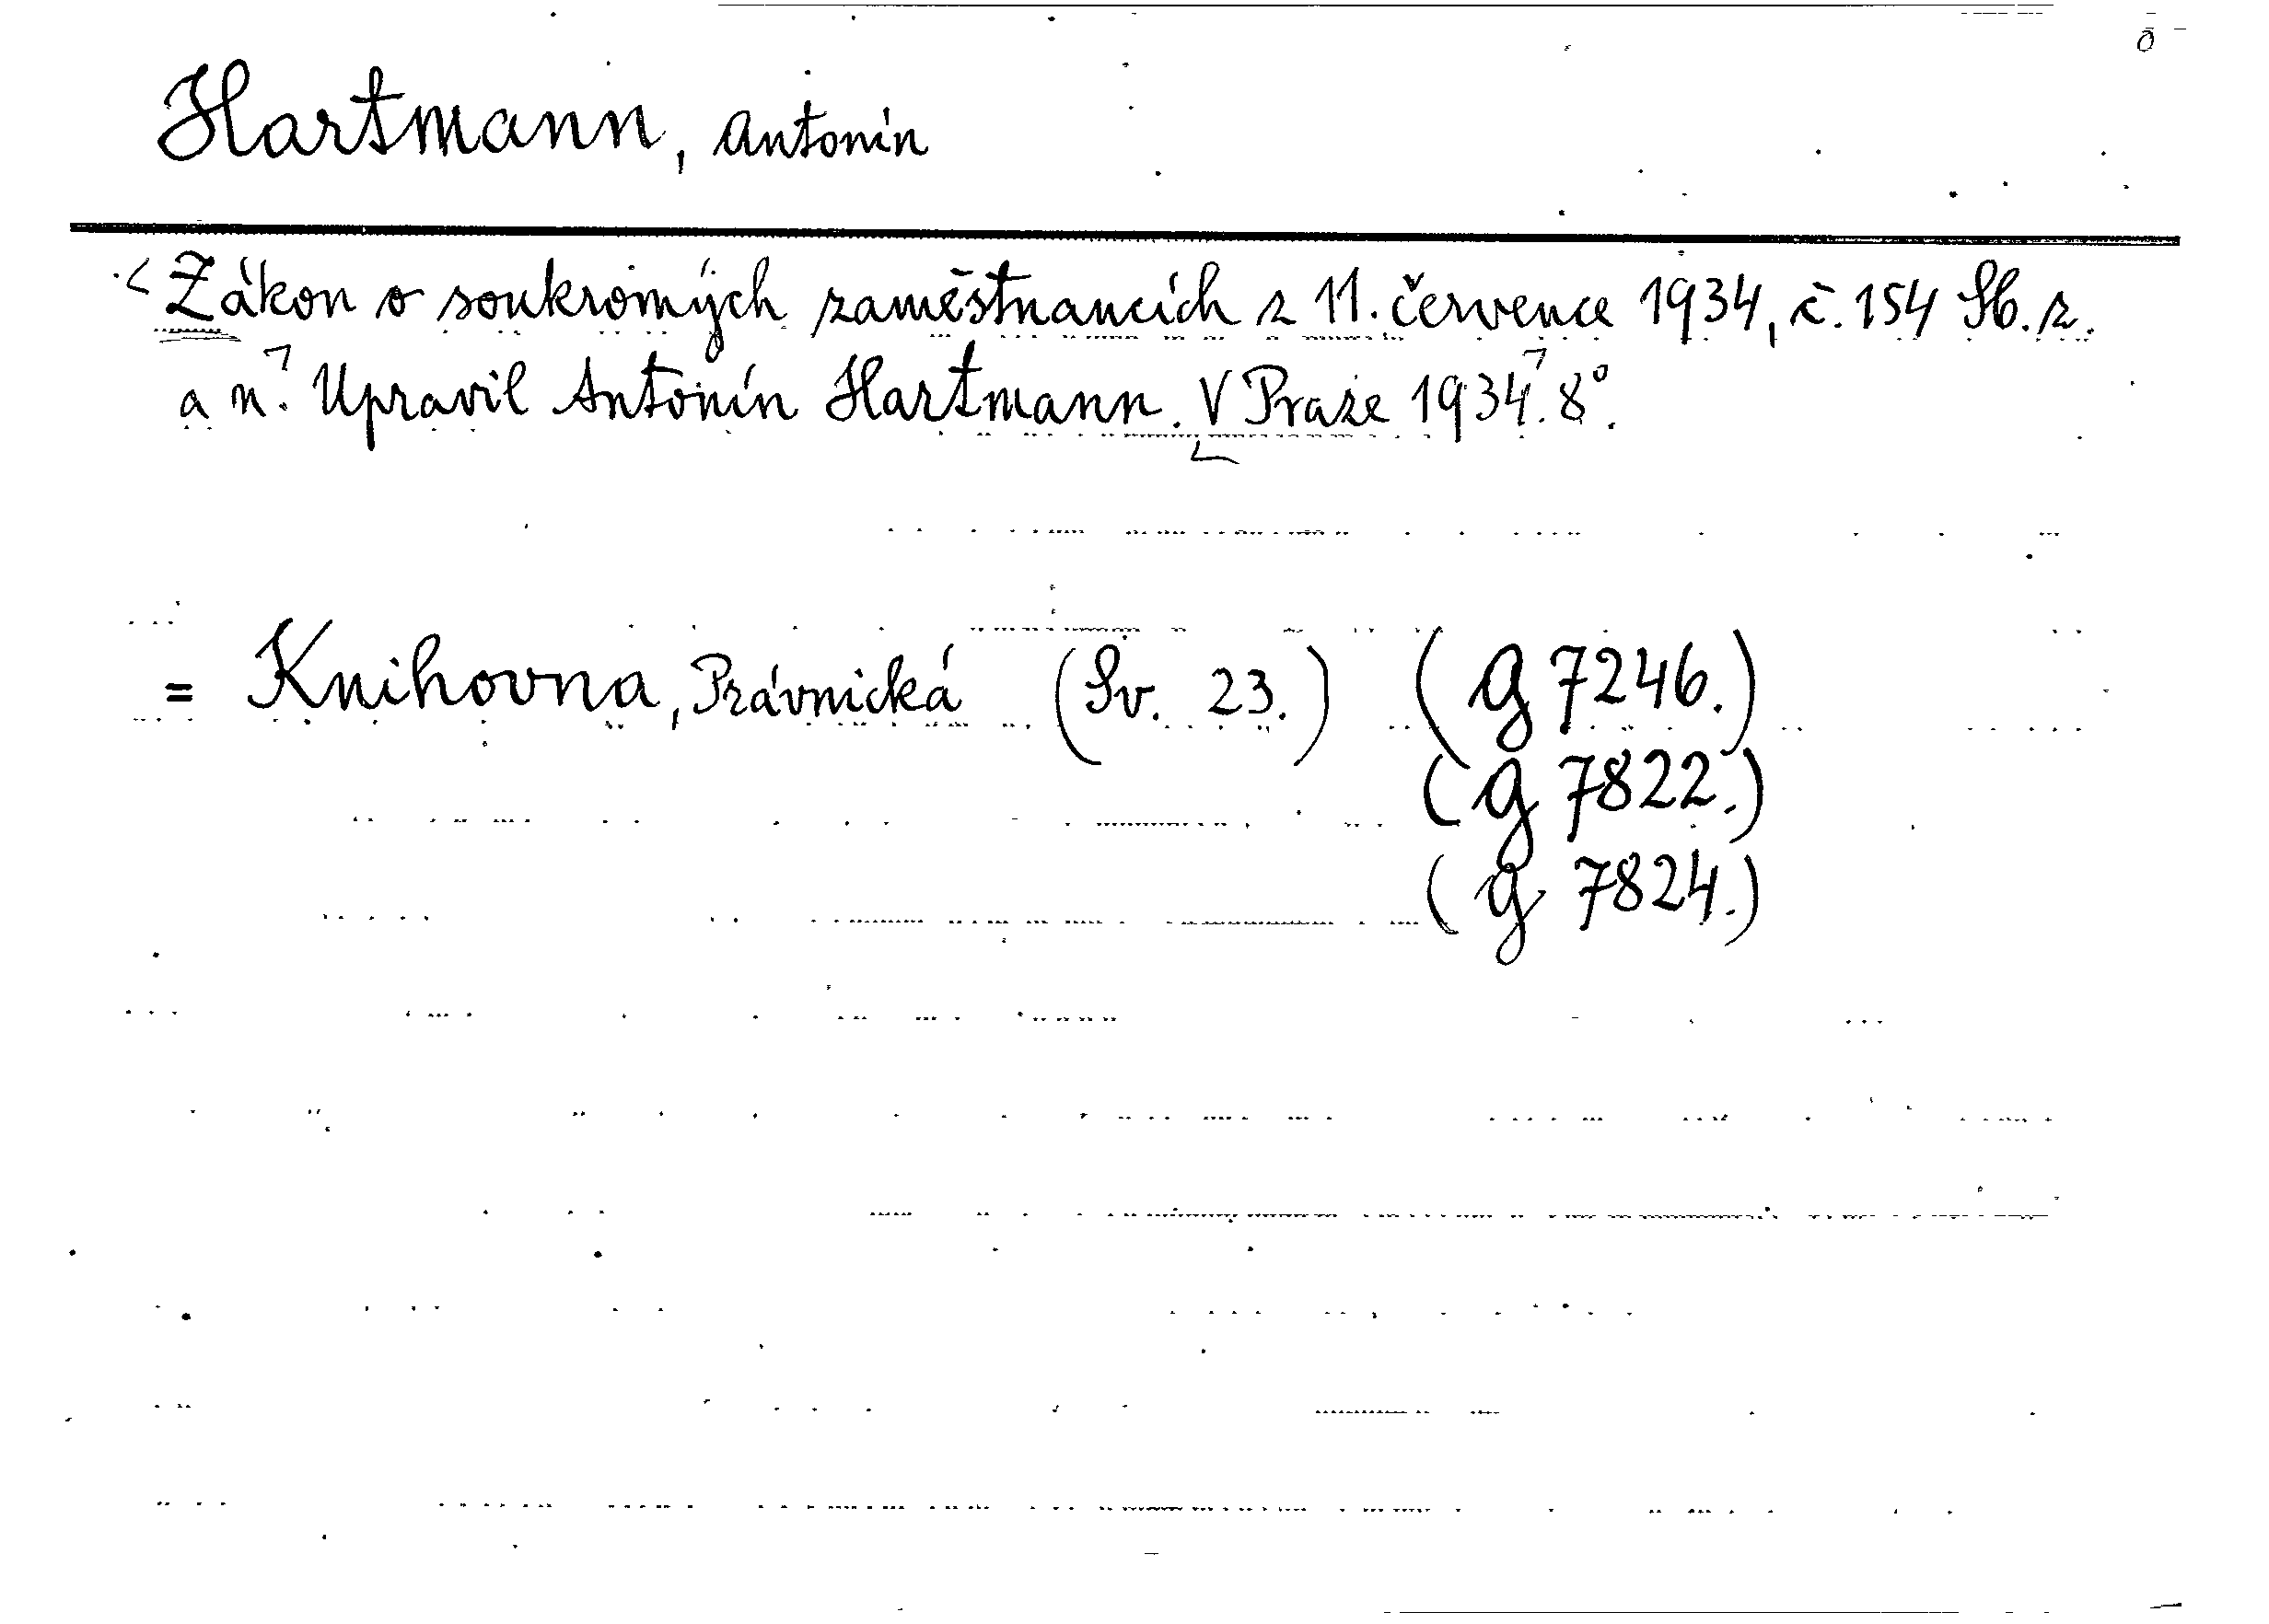 Hartmann, Antonín
Zákon o soukromých zaměstnancích z 11. července 1934, č. 154 Sb. z.
a n. Upravil Antonín Hartmann. V Praze 1934. 8°.
= Knihovna, Právnická (Sv. 23.) (g 7246.)
(g 7822.)
(g 7824.)